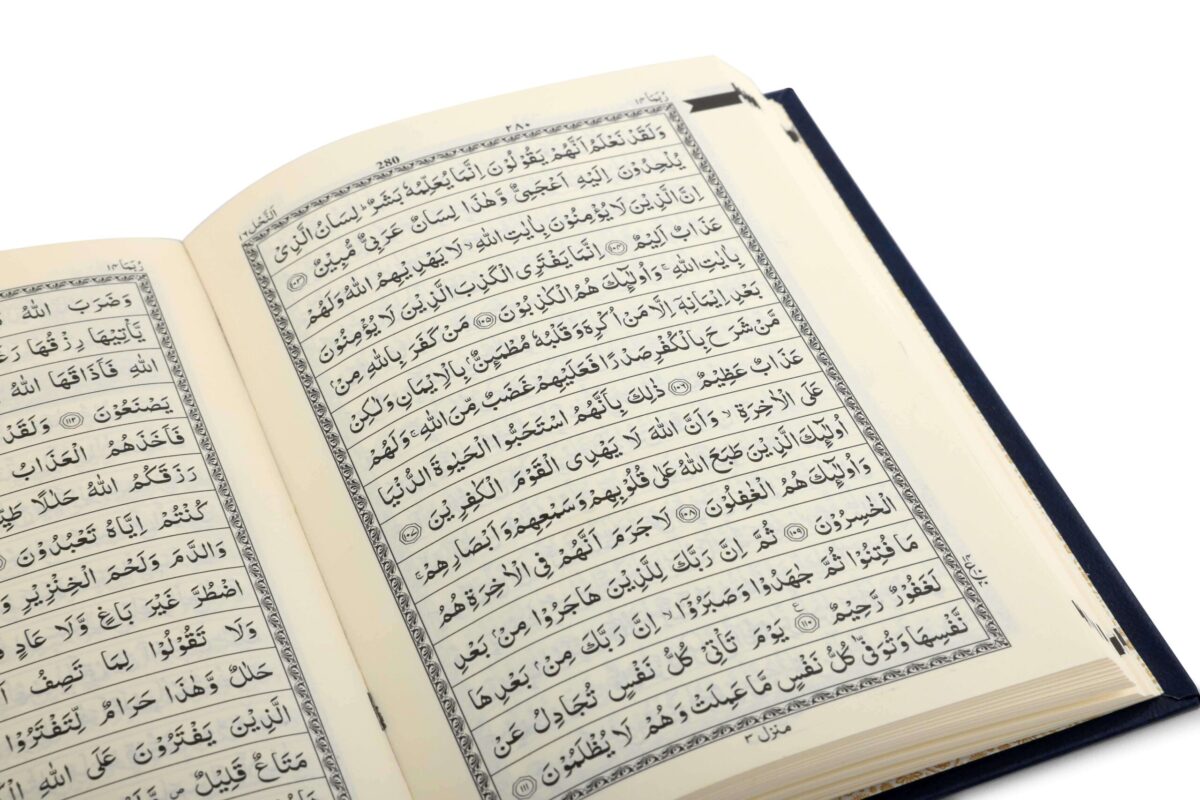 رُبَمَا ١٤
٢٨٠
280
اَلنَّحْل ١٦
وَلَقَدْ نَعْلَمُ اَنَّهُمْ يَقُوْلُوْنَ اِنَّمَا يُعَلِّمُهٗ بَشَرٌ ؕ لِسَانُ الَّذِىْ
يُلْحِدُوْنَ اِلَيْهِ اَعْجَمِىٌّ وَّهٰذَا لِسَانٌ عَرَبِىٌّ مُّبِيْنٌ ﴿۱۰۳﴾
اِنَّ الَّذِيْنَ لَا يُؤْمِنُوْنَ بِاٰيٰتِ اللّٰهِ ۙ لَا يَهْدِيْهِمُ اللّٰهُ وَلَهُمْ
عَذَابٌ اَلِيْمٌ ﴿۱۰۴﴾ اِنَّمَا يَفْتَرِى الْكَذِبَ الَّذِيْنَ لَا يُؤْمِنُوْنَ
بِاٰيٰتِ اللّٰهِ ۚ وَاُولٰٓئِكَ هُمُ الْكٰذِبُوْنَ ﴿۱۰۵﴾ مَنْ كَفَرَ بِاللّٰهِ مِنْۢ
بَعْدِ اِيْمَانِهٖۤ اِلَّا مَنْ اُكْرِهَ وَقَلْبُهٗ مُطْمَئِنٌّۢ بِالْاِيْمَانِ وَلٰكِنْ
مَّنْ شَرَحَ بِالْكُفْرِ صَدْرًا فَعَلَيْهِمْ غَضَبٌ مِّنَ اللّٰهِ ۚ وَلَهُمْ
عَذَابٌ عَظِيْمٌ ﴿۱۰۶﴾ ذٰلِكَ بِاَنَّهُمُ اسْتَحَبُّوا الْحَيٰوةَ الدُّنْيَا
عَلَى الْاٰخِرَةِ ۙ وَاَنَّ اللّٰهَ لَا يَهْدِى الْقَوْمَ الْكٰفِرِيْنَ ﴿۱۰۷﴾
اُولٰٓئِكَ الَّذِيْنَ طَبَعَ اللّٰهُ عَلٰى قُلُوْبِهِمْ وَسَمْعِهِمْ وَاَبْصَارِهِمْ ۚ
وَاُولٰٓئِكَ هُمُ الْغٰفِلُوْنَ ﴿۱۰۸﴾ لَا جَرَمَ اَنَّهُمْ فِى الْاٰخِرَةِ هُمُ
الْخٰسِرُوْنَ ﴿۱۰۹﴾ ثُمَّ اِنَّ رَبَّكَ لِلَّذِيْنَ هَاجَرُوْا مِنْۢ بَعْدِ
مَا فُتِنُوْا ثُمَّ جٰهَدُوْا وَصَبَرُوْۤا ۙ اِنَّ رَبَّكَ مِنْۢ بَعْدِهَا
لَغَفُوْرٌ رَّحِيْمٌ ﴿۱۱۰﴾ يَوْمَ تَاْتِىْ كُلُّ نَفْسٍ تُجَادِلُ عَنْ
نَّفْسِهَا وَتُوَفّٰى كُلُّ نَفْسٍ مَّا عَمِلَتْ وَهُمْ لَا يُظْلَمُوْنَ ﴿۱۱۱﴾
منزل ٣
رُبَمَا ١٤
وَضَرَبَ اللّٰهُ
يَّاْتِيْهَا رِزْقُهَا
اللّٰهِ فَاَذَاقَهَا اللّٰهُ
يَصْنَعُوْنَ ﴿۱۱۲﴾ وَلَقَدْ
فَاَخَذَهُمُ الْعَذَابُ
رَزَقَكُمُ اللّٰهُ حَلٰلًا
كُنْتُمْ اِيَّاهُ تَعْبُدُوْنَ
وَالدَّمَ وَلَحْمَ الْخِنْزِيْرِ
اضْطُرَّ غَيْرَ بَاغٍ وَّلَا عَادٍ
وَلَا تَقُوْلُوْا لِمَا تَصِفُ
حَلٰلٌ وَّهٰذَا حَرَامٌ لِّتَفْتَرُوْا
الَّذِيْنَ يَفْتَرُوْنَ عَلَى اللّٰهِ
مَتَاعٌ قَلِيْلٌ